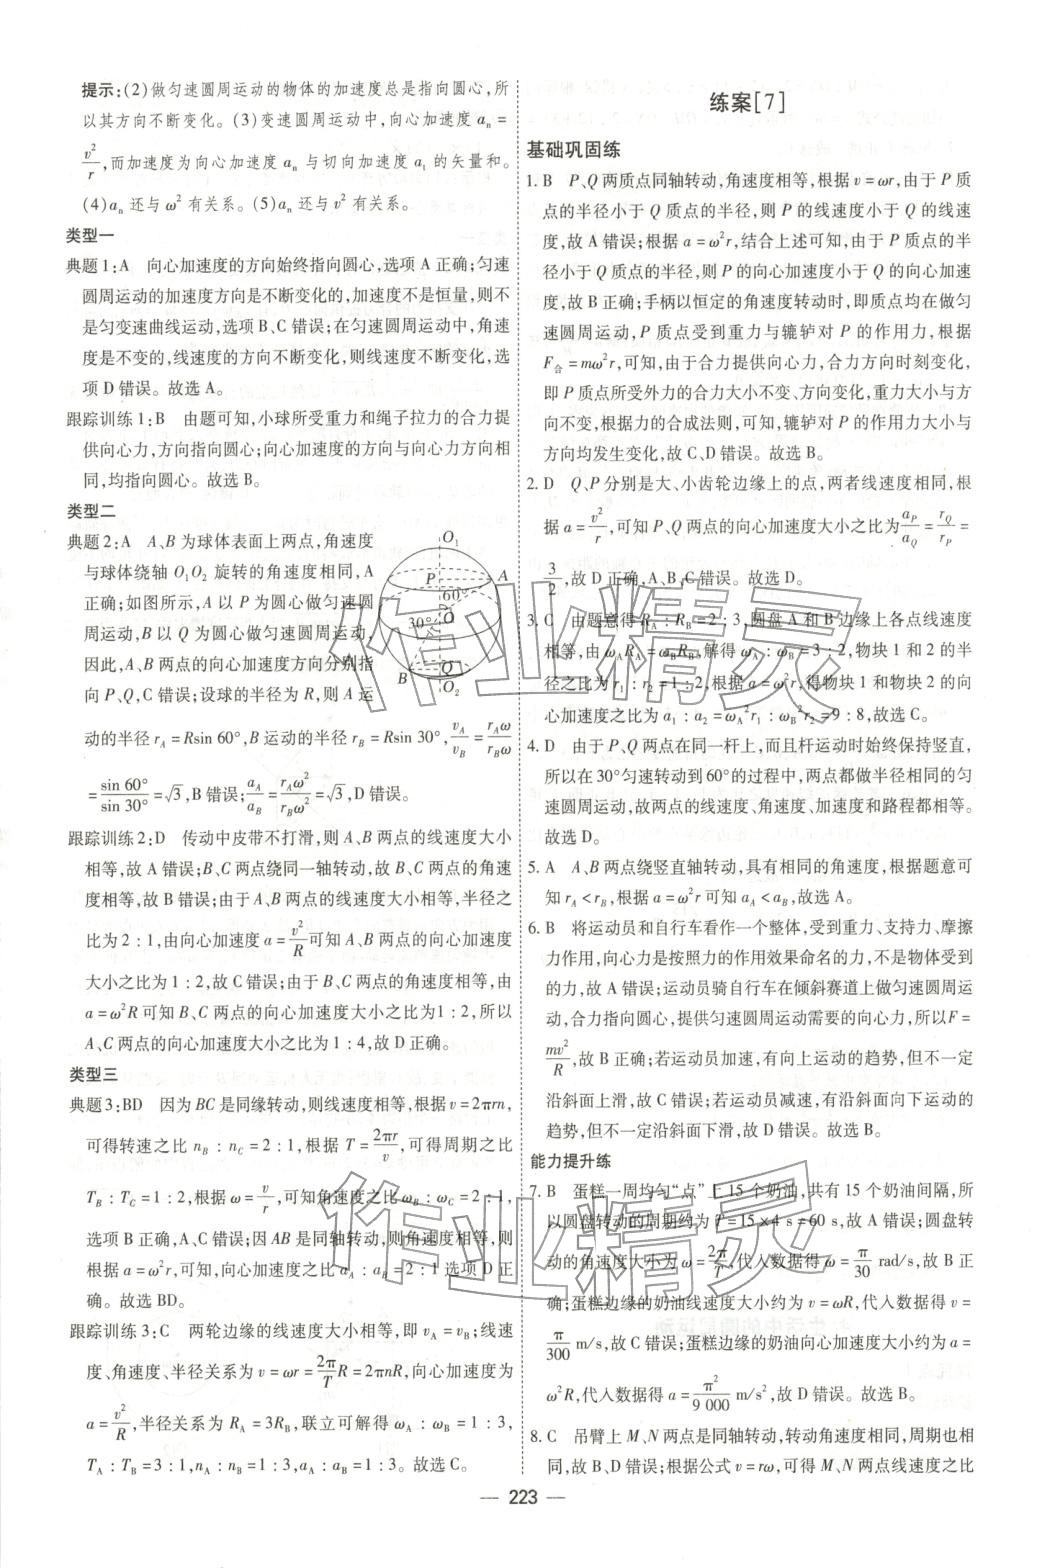 提示:(2)做匀速圆周运动的物体的加速度总是指向圆心,所
以其方向不断变化。(3)变速圆周运动中,向心加速度 aₙ =
v²/r,而加速度为向心加速度 aₙ 与切向加速度 aₜ 的矢量和。
(4)aₙ 还与 ω² 有关系。(5)aₙ 还与 v² 有关系。
类型一
典题1:A 向心加速度的方向始终指向圆心,选项 A 正确;匀速
圆周运动的加速度方向是不断变化的,加速度不是恒量,则不
是匀变速曲线运动,选项 B、C 错误;在匀速圆周运动中,角速
度是不变的,线速度的方向不断变化,则线速度不断变化,选
项 D 错误。故选 A。
跟踪训练1:B 由题可知,小球所受重力和绳子拉力的合力提
供向心力,方向指向圆心;向心加速度的方向与向心力方向相
同,均指向圆心。故选 B。
类型二
典题2:A A、B 为球体表面上两点,角速度
与球体绕轴 O₁O₂ 旋转的角速度相同,A
正确;如图所示,A 以 P 为圆心做匀速圆
周运动,B 以 Q 为圆心做匀速圆周运动,
因此,A、B 两点的向心加速度方向分别指
向 P、Q,C 错误;设球的半径为 R,则 A 运
动的半径 r_A = Rsin 60°,B 运动的半径 r_B = Rsin 30°,v_A/v_B = r_Aω/r_Bω
= sin 60°/sin 30° = √3,B 错误;a_A/a_B = r_Aω²/r_Bω² = √3,D 错误。
O₁
P
A
60°
O
30°
Q
B
O₂
跟踪训练2:D 传动中皮带不打滑,则 A、B 两点的线速度大小
相等,故 A 错误;B、C 两点绕同一轴转动,故 B、C 两点的角速
度相等,故 B 错误;由于 A、B 两点的线速度大小相等,半径之
比为 2∶1,由向心加速度 a = v²/R 可知 A、B 两点的向心加速度
大小之比为 1∶2,故 C 错误;由于 B、C 两点的角速度相等,由
a = ω²R 可知 B、C 两点的向心加速度大小之比为 1∶2,所以
A、C 两点的向心加速度大小之比为 1∶4,故 D 正确。
类型三
典题3:BD 因为 BC 是同缘转动,则线速度相等,根据 v = 2πrn,
可得转速之比 n_B∶n_C = 2∶1,根据 T = 2πr/v,可得周期之比
T_B∶T_C = 1∶2,A 错误;根据 ω = v/r,可知角速度之比 ω_B∶ω_C = 2∶1,
选项 B 正确,C 错误;因 AB 是同轴转动,则角速度相等,则
根据 a = ω²r,可知,向心加速度之比 a_A∶a_B = 2∶1 选项 D 正
确。故选 BD。
跟踪训练3:C 两轮边缘的线速度相等,即 v_A = v_B;线速
度、角速度、半径关系为 v = ωr = 2π/T R = 2πnR,向心加速度
a = v²/R,半径关系为 R_A = 3R_B,联立可解得 ω_A∶ω_B = 1∶3,
T_A∶T_B = 3∶1,n_A∶n_B = 1∶3,a_A∶a_B = 1∶3。故选 C。
练案[7]
基础巩固练
1. B P、Q 两质点同轴转动,角速度相等,根据 v = ωr,由于 P 质
点的半径小于 Q 质点的半径,则 P 的线速度小于 Q 的线速
度,故 A 错误;根据 a = ω²r,结合上述可知,由于 P 质点的半
径小于 Q 质点的半径,则 P 的向心加速度小于 Q 的向心加速
度,故 B 正确;手柄以恒定的角速度转动时,即质点均在做匀
速圆周运动,P 质点受到重力与辘轳对 P 的作用力,根据
F合 = mω²r,可知,由于合力提供向心力,合力方向时刻变化,
即 P 质点所受外力的合力大小不变、方向变化,重力大小与方
向不变,根据力的合成法则,可知,辘轳对 P 的作用力大小与
方向均发生变化,故 C、D 错误。故选 B。
2. D Q、P 分别是大、小齿轮边缘上的点,两者线速度相等,根
据 a = v²/r,可知 P、Q 两点的向心加速度大小之比为 a_P/a_Q = r_Q/r_P =
3/2,故 D 正确,A、B、C 错误。故选 D。
3. C 由题意得 R_A∶R_B = 2∶3,圆盘 A 和 B 边缘上各点线速度
相等,由 ω_A R_A = ω_B R_B,解得 ω_A∶ω_B = 3∶2,物块 1 和 2 的半
径之比为 r₁∶r₂ = 1∶2,根据 a = ω²r,得物块 1 和物块 2 的向
心加速度之比为 a₁∶a₂ = ω_A²r₁∶ω_B²r₂ = 9∶8,故选 C。
4. D 由于 P、Q 两点在同一杆上,而且杆运动时始终保持竖直,
所以在 30°匀速转动到 60°的过程中,两点都做半径相同的匀
速圆周运动,故两点的线速度、角速度、加速度和路程都相等。
故选 D。
5. A A、B 两点绕竖直轴转动,具有相同的角速度,根据题意可
知 r_A < r_B,根据 a = ω²r 可知 a_A < a_B,故选 A。
6. B 将运动员和自行车看作一个整体,受到重力、支持力、摩擦
力作用,向心力是按照力的作用效果命名的力,不是物体受到
的力,故 A 错误;运动员骑自行车在倾斜赛道上做匀速圆周运
动,合力指向圆心,提供匀速圆周运动需要的向心力,所以 F =
mv²/R,故 B 正确;若运动员加速,有向上运动的趋势,但不一定
沿斜面上滑,故 C 错误;若运动员减速,有沿斜面向下运动的
趋势,但不一定沿斜面下滑,故 D 错误。故选 B。
能力提升练
7. B 蛋糕一周均匀“点”上 15 个奶油,共有 15 个奶油间隔,所
以圆盘转动的周期约为 T = 15×4 s = 60 s,故 A 错误;圆盘转
动的角速度大小为 ω = 2π/T,代入数据得 ω = π/30 rad/s,故 B 正
确;蛋糕边缘的奶油线速度大小约为 v = ωR,代入数据得 v =
π/300 m/s,故 C 错误;蛋糕边缘的奶油向心加速度大小约为 a =
ω²R,代入数据得 a = π²/9 000 m/s²,故 D 错误。故选 B。
8. C 吊臂上 M、N 两点是同轴转动,转动角速度相同,周期也相
同,故 B、D 错误;根据公式 v = rω,可得 M、N 两点线速度之比
— 223 —
作业精灵
作业精灵